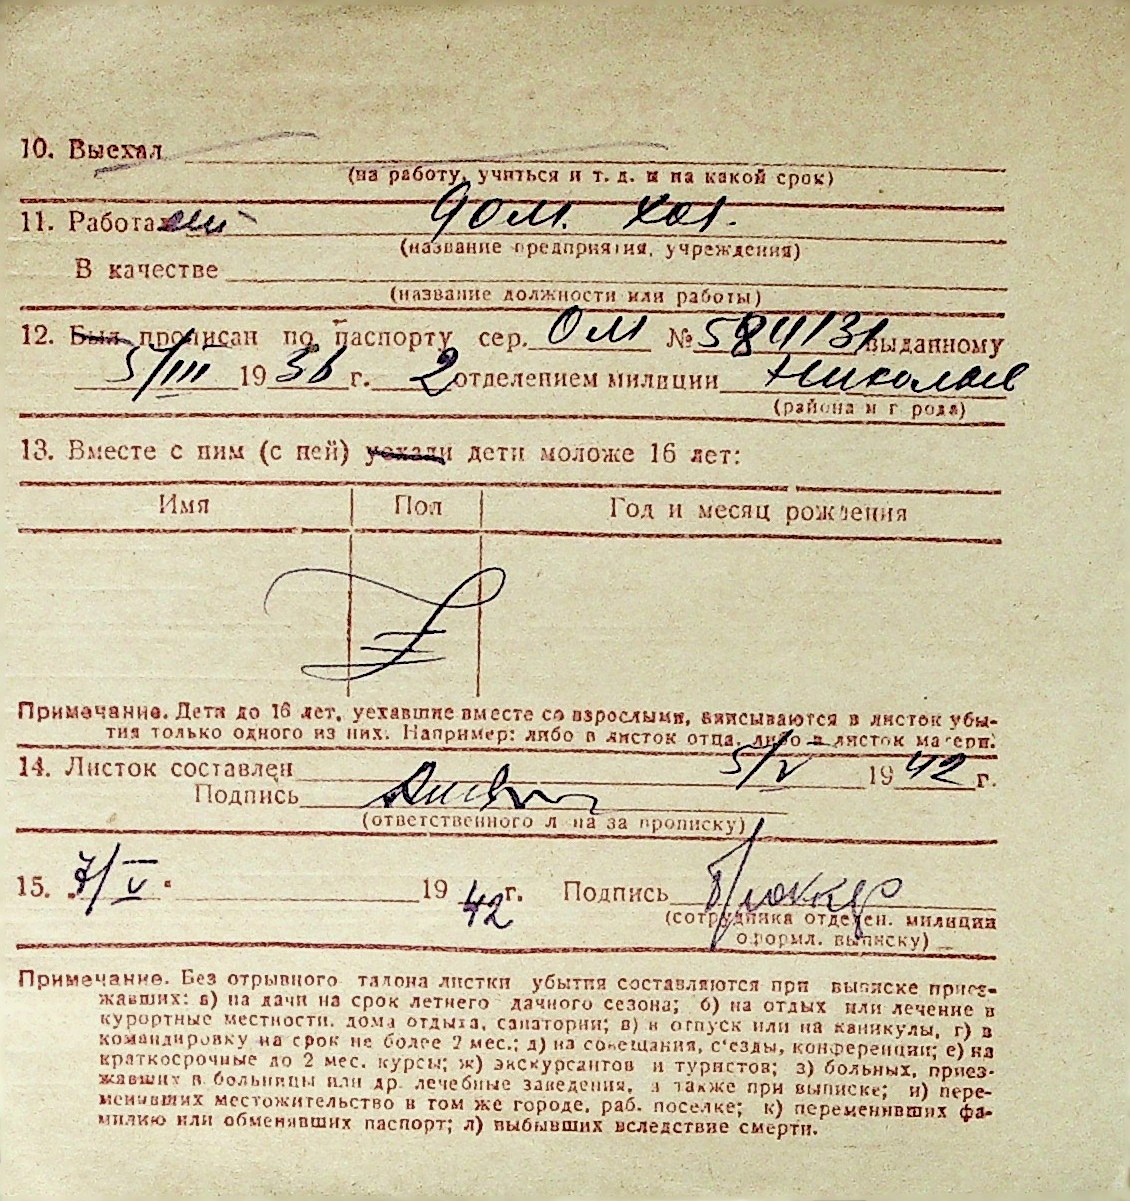 10. Выехал
(на работу, учиться и т. д. и на какой срок)
11. Работа дом. хоз.
(название предприятия, учреждения)
В качестве
(название должности или работы)
12. Был прописан по паспорту сер. ОМ № 584131 выданному
5/III 1936 г. 2 отделением милиции Николаев
(района и города)
13. Вместе с ним (с ней) уехали дети моложе 16 лет:
Имя Пол Год и месяц рождения
Примечание. Дети до 16 лет, уехавшие вместе со взрослыми, вписываются в листок убы-
тия только одного из них. Например: либо в листок отца, либо в листок матери.
14. Листок составлен 5/V 1942 г.
Подпись
(ответственного лица за прописку)
15. 7/V 1942 г. Подпись
(сотрудника отделен. милиции
оформл. выписку)
Примечание. Без отрывного талона листки убытия составляются при выписке приез-
жавших: а) на дачи на срок летнего дачного сезона; б) на отдых или лечение в
курортные местности, дома отдыха, санатории; в) в отпуск или на каникулы, г) в
командировку на срок не более 2 мес.; д) на совещания, с'езды, конференции; е) на
краткосрочные до 2 мес. курсы; ж) экскурсантов и туристов; з) больных, приез-
жавших в больницы или др. лечебные заведения, а также при выписке; и) пере-
менивших местожительство в том же городе, раб. поселке; к) переменивших фа-
милию или обменявших паспорт; л) выбывших вследствие смерти.